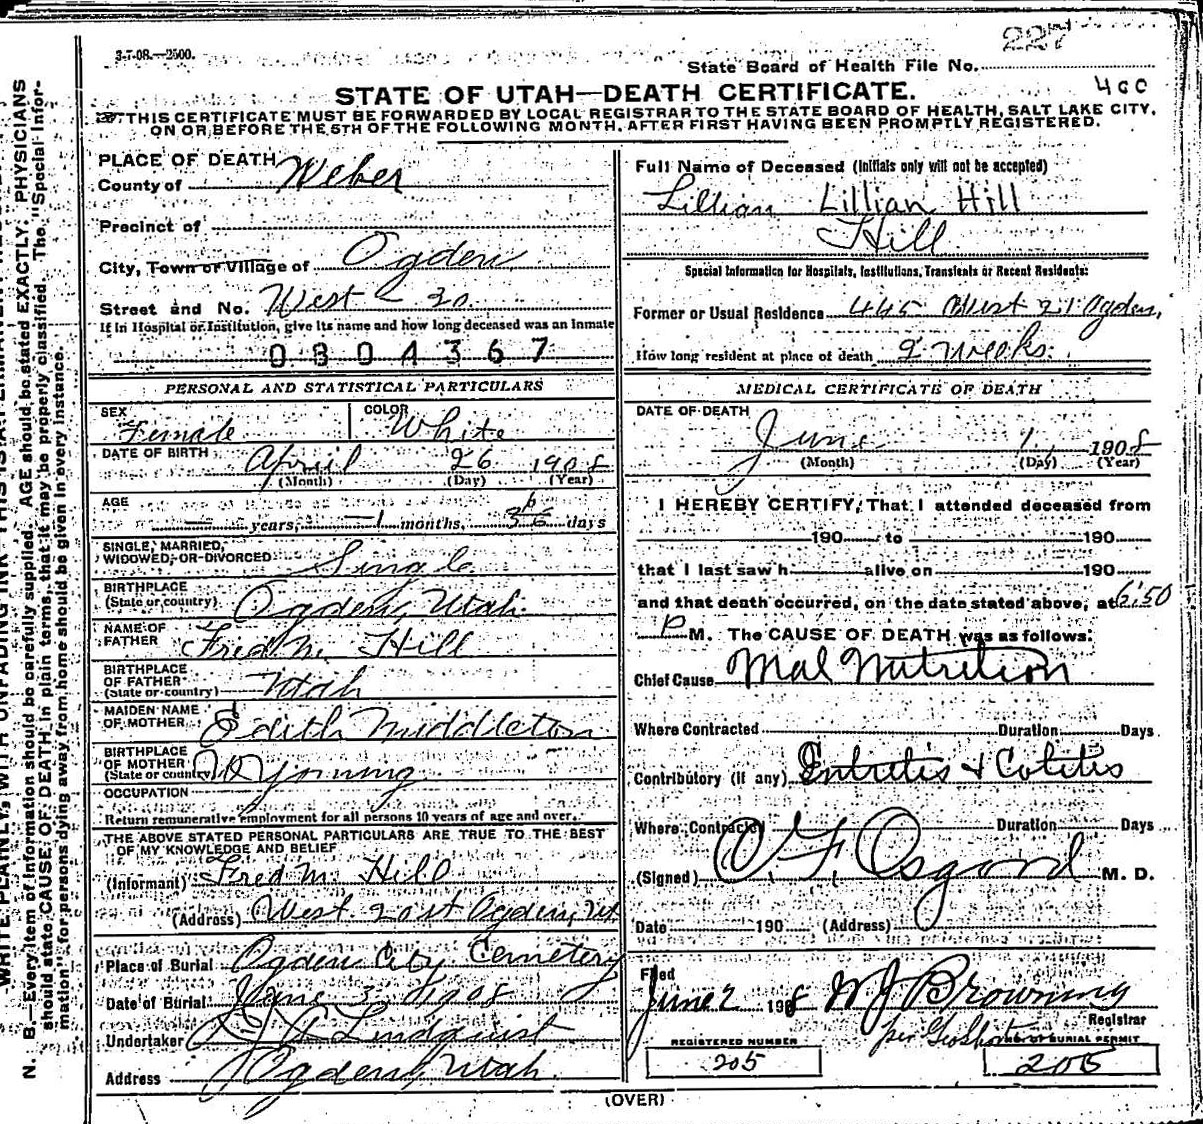 3-7-08.—2500.
227
State Board of Health File No.
400
STATE OF UTAH—DEATH CERTIFICATE.
THIS CERTIFICATE MUST BE FORWARDED BY LOCAL REGISTRAR TO THE STATE BOARD OF HEALTH, SALT LAKE CITY,
ON OR BEFORE THE 5TH OF THE FOLLOWING MONTH, AFTER FIRST HAVING BEEN PROMPTLY REGISTERED.
PLACE OF DEATH
County of Weber
Precinct of
City, Town or Village of Ogden
Street and No. West 20
If in Hospital or Institution, give its name and how long deceased was an Inmate
0804367
PERSONAL AND STATISTICAL PARTICULARS
SEX Female COLOR White
DATE OF BIRTH April 26 1908
(Month) (Day) (Year)
AGE
— years, —1 months, 36 days
SINGLE, MARRIED,
WIDOWED, OR DIVORCED Single
BIRTHPLACE
(State or country) Ogden, Utah.
NAME OF
FATHER Fred M. Hill
BIRTHPLACE
OF FATHER
(State or country) Utah
MAIDEN NAME
OF MOTHER Edith Middleton
BIRTHPLACE
OF MOTHER
(State or country) Wyoming
OCCUPATION
Return remunerative employment for all persons 10 years of age and over.
THE ABOVE STATED PERSONAL PARTICULARS ARE TRUE TO THE BEST
OF MY KNOWLEDGE AND BELIEF
(Informant) Fred M. Hill
(Address) West 20st Ogden, Ut
Place of Burial Ogden City Cemetery
Date of Burial June 3, 1908
Undertaker Lindquist
Address Ogden, Utah.
Full Name of Deceased (Initials only will not be accepted)
Lillian Lillian Hill
Hill
Special Information for Hospitals, Institutions, Transients or Recent Residents:
Former or Usual Residence 445 West 21 Ogden,
How long resident at place of death 2 Weeks.
MEDICAL CERTIFICATE OF DEATH
DATE OF DEATH
June 1 1908
(Month) (Day) (Year)
I HEREBY CERTIFY, That I attended deceased from
190 to 190
that I last saw h alive on 190
and that death occurred, on the date stated above, at 6:50
P M. The CAUSE OF DEATH was as follows:
Chief Cause Mal Nutrition
Where Contracted Duration Days
Contributory (if any) Entretis & Colitis
Where Contracted Duration Days
(Signed) O. F. Osgood M. D.
Date 190 (Address)
Filed
June 2 1908 W J Browning
Registrar
per
REGISTERED NUMBER
205
NO. OF BURIAL PERMIT
205
(OVER)
WRITE PLAINLY, WITH UNFADING INK—THIS IS A PERMANENT
N. B.—Every item of information should be carefully supplied. AGE should be stated EXACTLY. PHYSICIANS
should state CAUSE OF DEATH in plain terms, that it may be properly classified. The "Special Infor-
mation" for persons dying away from home should be given in every instance.